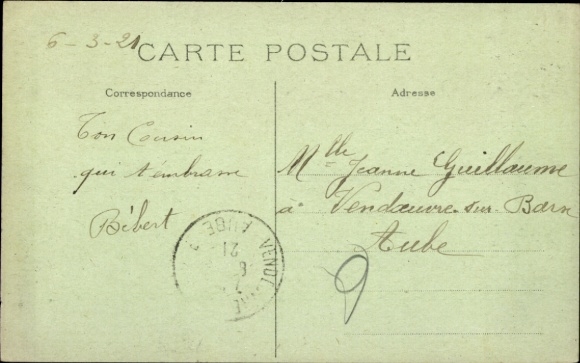 6-3-21
CARTE POSTALE
Correspondance
Adresse
Ton Cousin
qui t'embrasse
Bébert
Mlle Jeanne Guillaume
à Vendœuvre-sur-Barse
Aube
9
AUBE
21